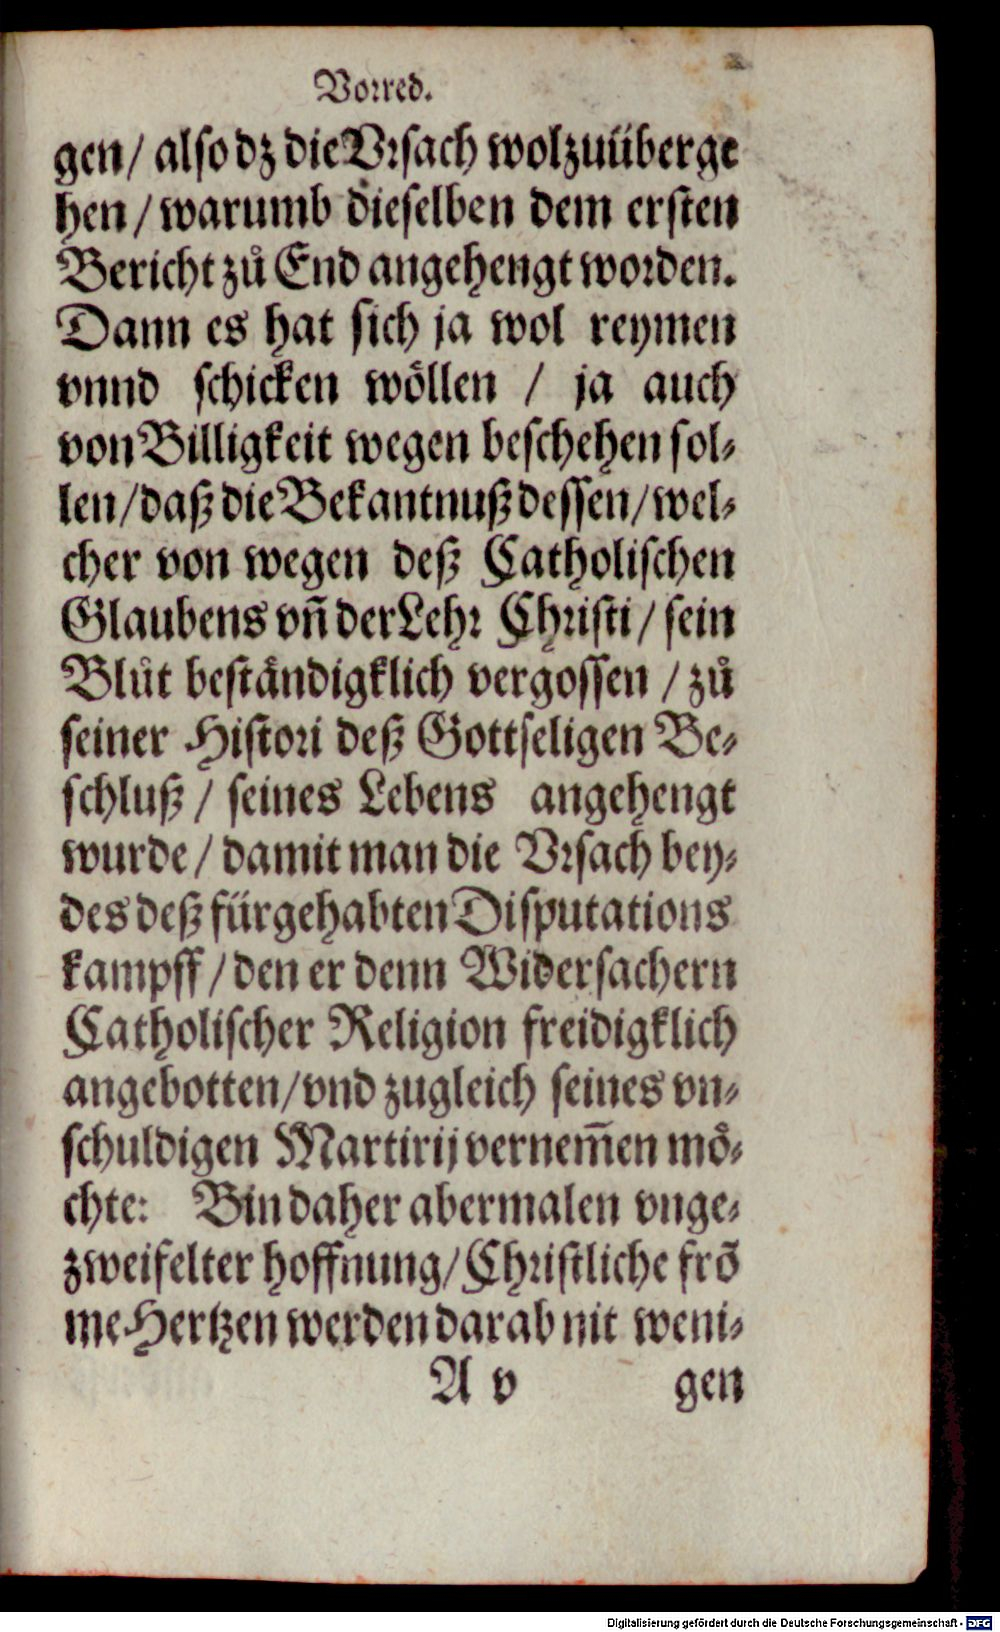 Vorred.
gen/ also dz die Vrsach wolzuüberge
hen/ warumb dieselben dem ersten
Bericht zů End angehengt worden.
Dann es hat sich ja wol reymen
vnnd schicken wöllen / ja auch
von Billigkeit wegen beschehen sol⸗
len/ daß die Bekantnuß dessen/ wel⸗
cher von wegen deß Catholischen
Glaubens vñ der Lehr Christi/ sein
Blůt beständigklich vergossen / zů
seiner Histori deß Gottseligen Be⸗
schluß / seines Lebens angehengt
wurde/ damit man die Vrsach bey⸗
des deß fürgehabten Disputations
kampff/ den er denn Widersachern
Catholischer Religion freidigklich
angebotten/ vnd zugleich seines vn⸗
schuldigen Martirij vernem̃en mö⸗
chte: Bin daher abermalen vnge⸗
zweifelter hoffnung/ Christliche frõ
me Hertzen werden darab nit weni⸗
A v gen
Digitalisierung gefördert durch die Deutsche Forschungsgemeinschaft - DFG